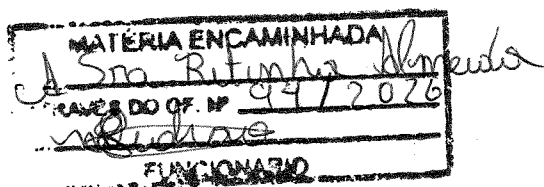 MATÉRIA ENCAMINHADA
A Sra Ritinha Almeida
DO OF. Nº 94/2026
FUNCIONÁRIO